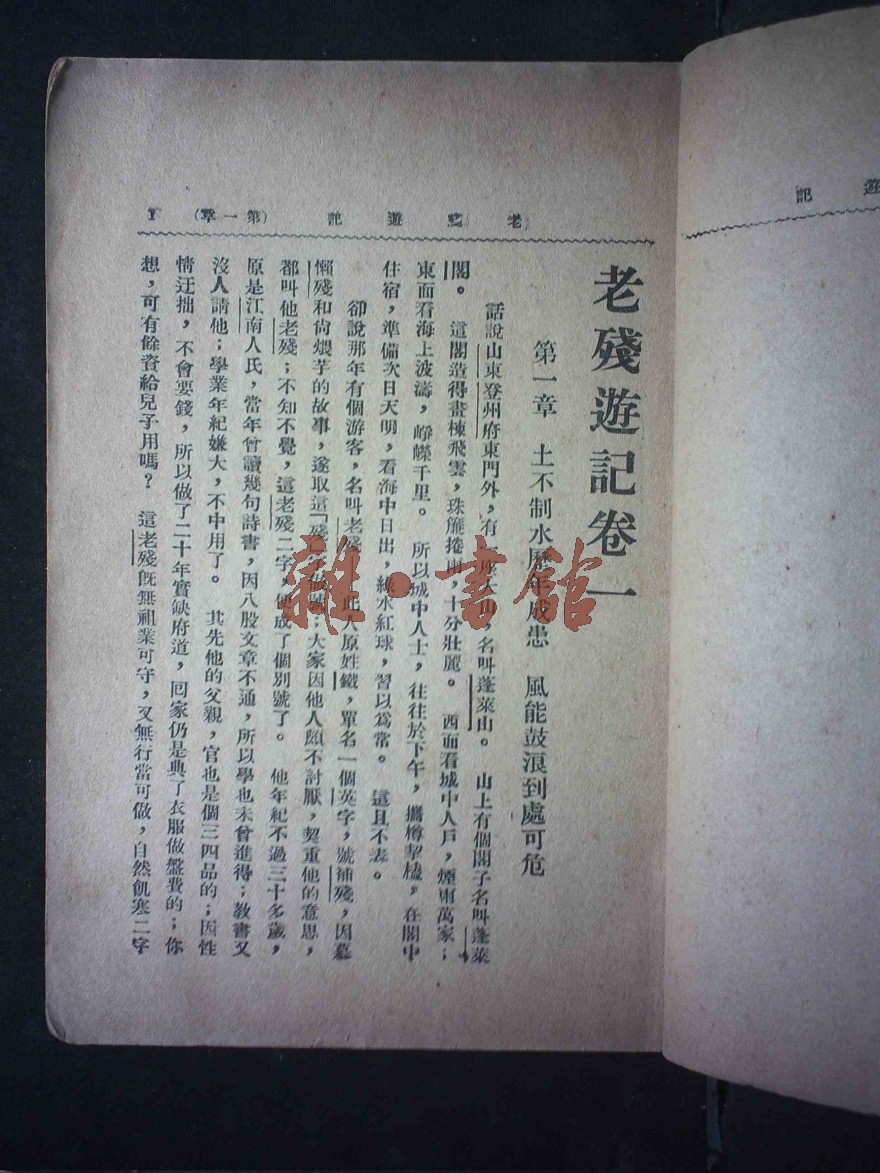 老殘遊記 (第一章) 1
老殘遊記卷一
第一章 土不制水歷年成患 風能鼓浪到處可危
話說山東登州府東門外，有一座大山，名叫蓬萊山。 山上有個閣子名叫蓬萊
閣。 這閣造得畫棟飛雲，珠簾捲雨，十分壯麗。 西面看城中人戶，煙雨萬家；
東面看海上波濤，崢嶸千里。 所以城中人士，往往於下午，攜樽挈榼，在閣中
住宿，準備次日天明，看海中日出，綠水紅球，習以爲常。 這且不表。
卻說那年有個游客，名叫老殘。 此人原姓鐵，單名一個英字，號補殘，因慕
懶殘和尙煨芋的故事，遂取這「殘」字做號；大家因他人頗不討厭，契重他的意思，
都叫他老殘；不知不覺，這老殘二字，便成了個別號了。 他年紀不過三十多歲，
原是江南人氏，當年曾讀幾句詩書，因八股文章不通，所以學也未曾進得；敎書又
沒人請他；學業年紀嫌大，不中用了。 其先他的父親，官也是個三四品的；因性
情迂拙，不會要錢，所以做了二十年實缺府道，回家仍是典了衣服做盤費的；你
想，可有餘資給兒子用嗎？ 這老殘旣無祖業可守，又無行當可做，自然飢寒二字
遊記
雜·書館